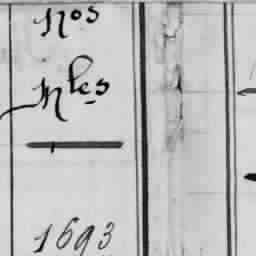 Nos
Mles
1693